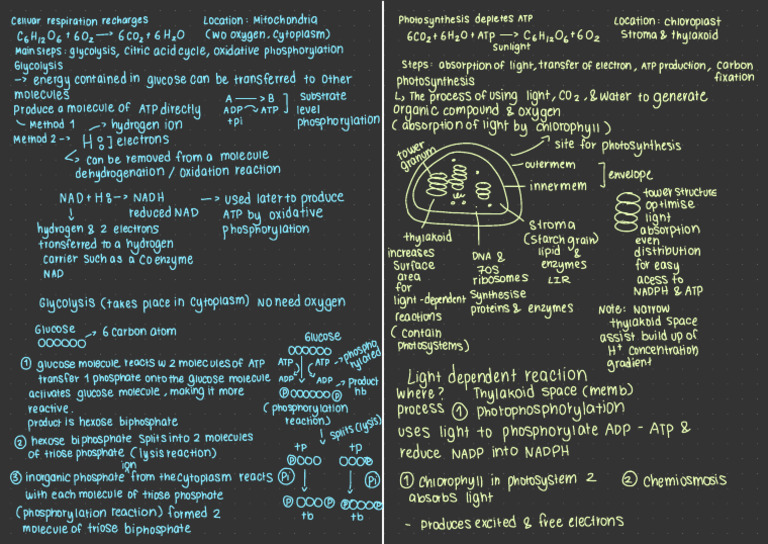 Celluar respiration recharges
Location: Mitochondria
C6H12O6 + 6O2 → 6CO2 + 6H2O
(w/o oxygen. Cytoplasm)
Main steps: glycolysis, citric acid cycle, oxidative phosphorylation
Glycolysis
-> energy contained in glucose can be transferred to other
molecules
Produce a molecule of ATP directly
A → B
ADP → ATP
+pi
substrate
level
phosphorylation
Method 1
Method 2 -> H
hydrogen ion
electrons
can be removed from a molecule
dehydrogenation / oxidation reaction
NAD + H8 -> NADH
reduced NAD
-> used later to produce
ATP by oxidative
phosphorylation
hydrogen & 2 electrons
transferred to a hydrogen
carrier such as a coenzyme
NAD
Glycolysis (takes place in cytoplasm) No need oxygen
Glucose
→ 6 carbon atom
① glucose molecule reacts w 2 molecules of ATP
transfer 1 phosphate onto the glucose molecule
activates glucose molecule, making it more
reactive.
product is hexose biphosphate
② hexose biphosphate splits into 2 molecules
of triose phosphate (lysis reaction)
③ inorganic phosphate ion from the cytoplasm reacts
with each molecule of triose phosphate
(phosphorylation reaction) formed 2
molecule of triose biphosphate
Glucose
ATP ATP → phosphorylated
ADP ADP
P P → Product
hb
(phosphorylation
reaction)
splits (lysis)
tP tP
P P
Pi Pi
P P P P
tb tb
Photosynthesis depletes ATP
Location: chloroplast
6CO2 + 6H2O + ATP → C6H12O6 + 6O2
Sunlight
Stroma & thylakoid
Steps: absorption of light, transfer of electron, ATP production, carbon
fixation
photosynthesis
↳ The process of using light, CO2, & water to generate
organic compound & oxygen
(absorption of light by chlorophyll)
→ site for photosynthesis
tower
granum
outermem
innermem
envelope
thylakoid
increases
surface
area
for
light-dependent
reactions
(contain
photosystems)
DNA &
70S
ribosomes
synthesise
proteins & enzymes
Stroma
(starch grain)
lipid &
enzymes
LIR
tower structure
optimise
light
absorption
even
distribution
for easy
acess to
NADPH & ATP
Note: Narrow
thylakoid space
assist build up of
H+ concentration
gradient
Light dependent reaction
where? Thylakoid space (memb)
process ① photophosphorylation
uses light to phosphorylate ADP - ATP &
reduce NADP into NADPH
① Chlorophyll in photosystem 2
absorbs light
② Chemiosmosis
- Produces excited & free electrons